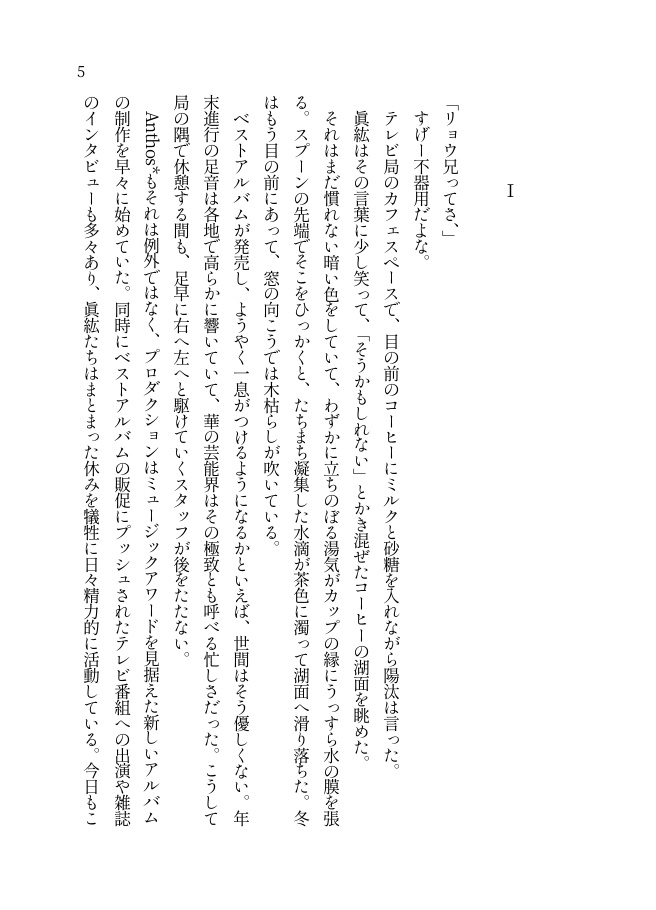 I
「リョウ兄ってさ、」
すげー不器用だよな。
テレビ局のカフェスペースで、目の前のコーヒーにミルクと砂糖を入れながら陽汰は言った。
眞紘はその言葉に少し笑って、「そうかもしれない」とかき混ぜたコーヒーの湖面を眺めた。
それはまだ慣れない暗い色をしていて、わずかに立ちのぼる湯気がカップの縁にうっすら水の膜を張
る。スプーンの先端でそこをひっかくと、たちまち凝集した水滴が茶色に濁って湖面へ滑り落ちた。冬
はもう目の前にあって、窓の向こうでは木枯らしが吹いている。
ベストアルバムが発売し、ようやく一息がつけるようになるかといえば、世間はそう優しくない。年
末進行の足音は各地で高らかに響いていて、華の芸能界はその極致とも呼べる忙しさだった。こうして
局の隅で休憩する間も、足早に右へ左へと駆けていくスタッフが後をたたない。
Anthos*もそれは例外ではなく、プロダクションはミュージックアワードを見据えた新しいアルバム
の制作を早々に始めていた。同時にベストアルバムの販促にプッシュされたテレビ番組への出演や雑誌
のインタビューも多々あり、眞紘たちはまとまった休みを犠牲に日々精力的に活動している。今日もこ
5